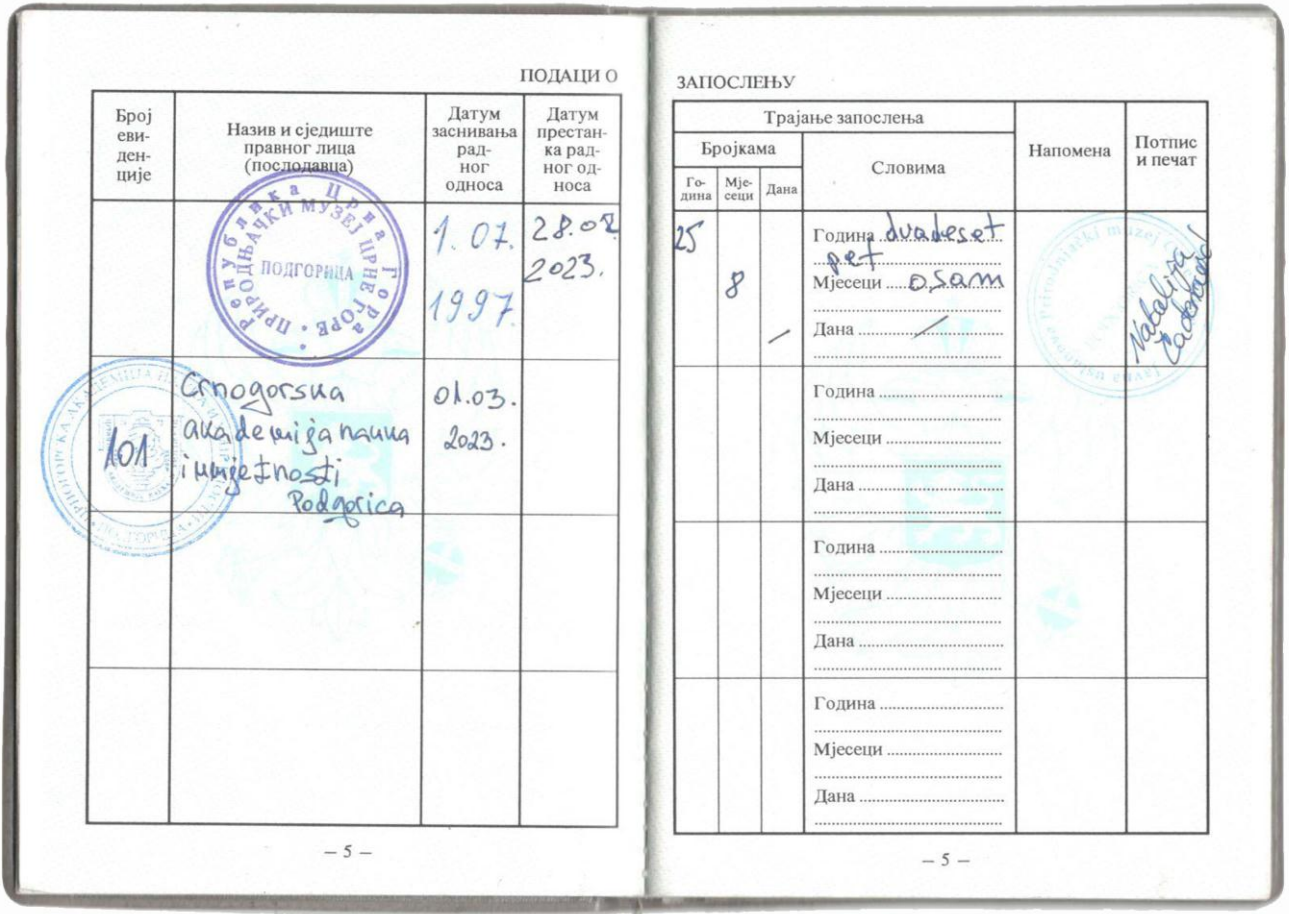 ПОДАЦИ О
Број
еви-
ден-
ције
Назив и сједиште
правног лица
(послодавца)
Датум
заснивања
рад-
ног
односа
Датум
престан-
ка рад-
ног од-
носа
Република Црна Гора
ПРИРОДЊАЧКИ МУЗЕЈ ЦРНЕ ГОРЕ
ПОДГОРИЦА
1. 07.
1997.
28.02
2023.
101
Crnogorska
akademija nauka
i umjetnosti
Podgorica
01.03.
2023.
– 5 –
ЗАПОСЛЕЊУ
Трајање запослења
Бројкама
Словима
Го-
дина
Мје-
сеци
Дана
Напомена
Потпис
и печат
25
8
/
Година dvadeset
pet
Мјесеци osam
Дана /
Prirodnjački muzej
Javna ustanova
Година
Мјесеци
Дана
Година
Мјесеци
Дана
Година
Мјесеци
Дана
– 5 –